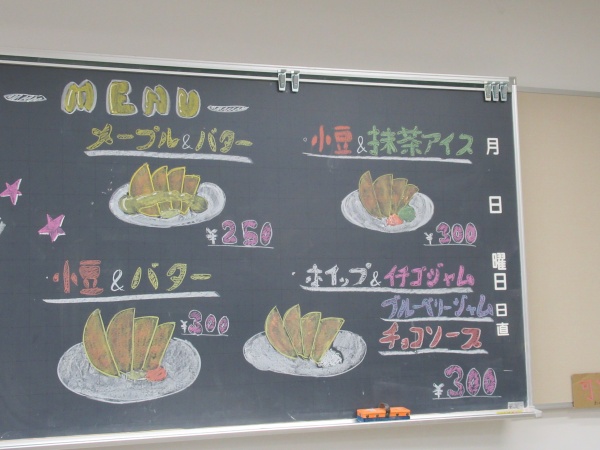 MENU
メープル&バター
¥250
小豆&抹茶アイス
¥300
小豆&バター
¥300
ホイップ&イチゴジャム
ブルーベリージャム
チョコソース
¥300
月
日
曜日
日直